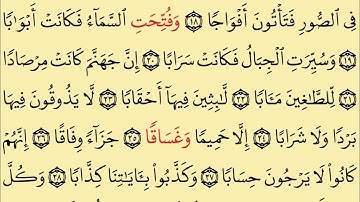 فِى ٱلصُّورِ فَتَأْتُونَ أَفْوَاجًا ١٨ وَفُتِّحَتِ ٱلسَّمَآءُ فَكَانَتْ أَبْوَٰبًا
١٩ وَسُيِّرَتِ ٱلْجِبَالُ فَكَانَتْ سَرَابًا ٢٠ إِنَّ جَهَنَّمَ كَانَتْ مِرْصَادًا
٢١ لِّلطَّٰغِينَ مَـَٔابًا ٢٢ لَّٰبِثِينَ فِيهَآ أَحْقَابًا ٢٣ لَّا يَذُوقُونَ فِيهَا
بَرْدًا وَلَا شَرَابًا ٢٤ إِلَّا حَمِيمًا وَغَسَاقًا ٢٥ جَزَآءً وِفَاقًا ٢٦ إِنَّهُمْ
كَانُوا۟ لَا يَرْجُونَ حِسَابًا ٢٧ وَكَذَّبُوا۟ بِـَٔايَٰتِنَا كِذَّابًا ٢٨ وَكُلَّ